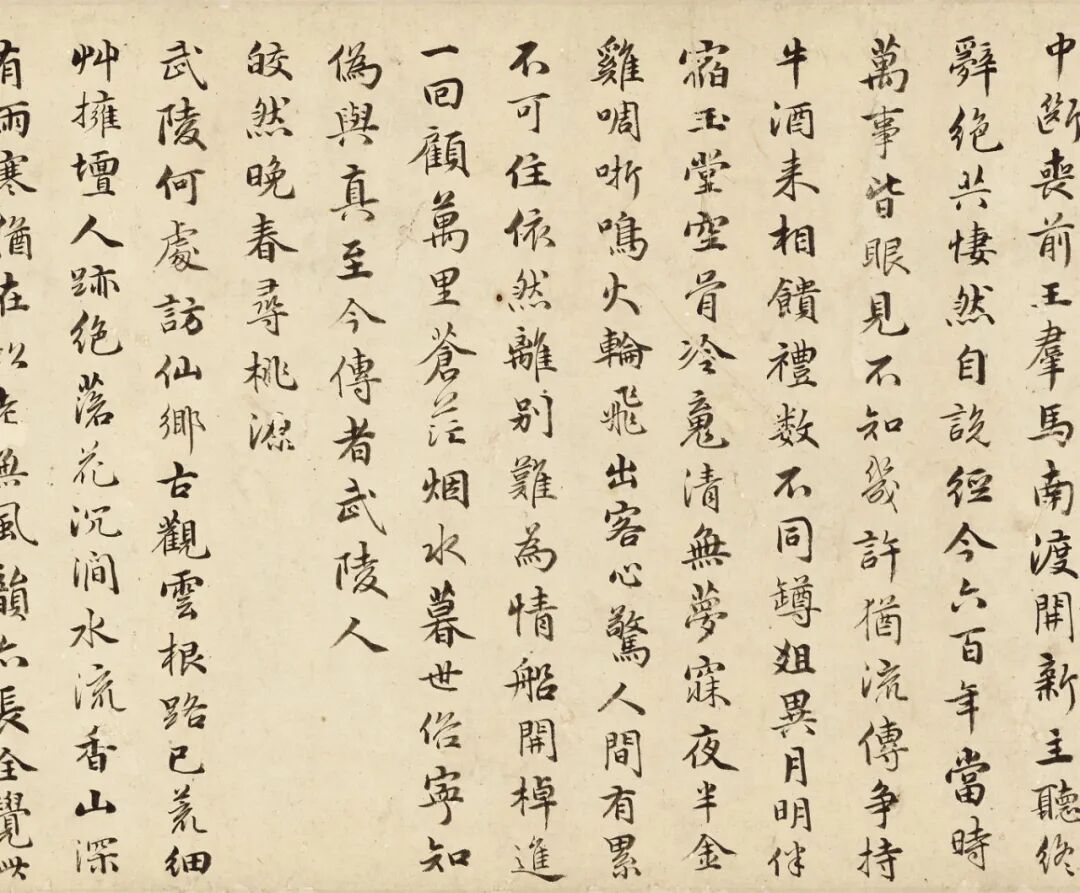 中断喪前王羣馬南渡開新主聽終
辭絶共悽然自説經今六百年當時
萬事皆眼見不知幾許猶流傳争持
牛酒来相饋禮数不同罇爼異月明伴
宿玉堂空骨冷魂清無夢寐夜半金
雞啁哳鳴火輪飛出客心驚人間有累
不可住依然離别難為情船開棹進
一回顧萬里蒼茫烟水暮世俗寧知
偽與真至今傳者武陵人
皎然晚春尋桃源
武陵何處訪仙鄉古觀雲根路已荒細
艸擁壇人跡絶落花沉澗水流香山深
有雨寒猶在松老無風韻亦長全覺此